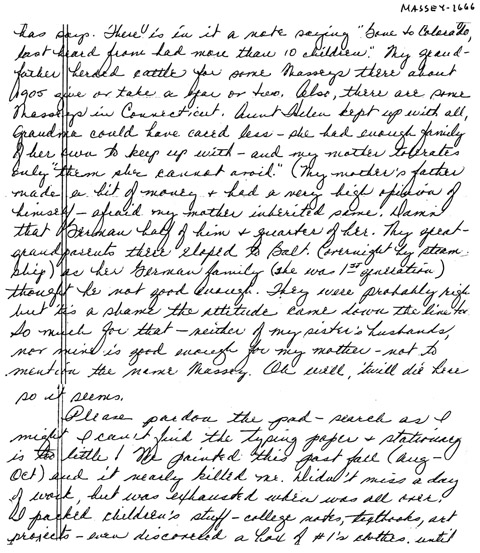 MASSEY-1666
has says. There is in it a note saying "Gone to Colorado,
last heard from had more than 10 children." My grand-
father herded cattle for some Masseys there about
1905 give or take a year or two. Also, there are some
Masseys in Connecticut. Aunt Helen kept up with all,
Grandma could have cared less - she had enough family
of her own to keep up with - and my mother tolerates
only "them she cannot avoid." (My mother's father
made a bit of money & had a very high opinion of
himself - afraid my mother inherited some. Damn
that German half of him & quarter of her. My great-
grandparents there eloped to Balt. (overnight by steam
ship) as her German family (she was 1st gneration)
thought he not good enough. They were probably right
but tis a shame the attitude came down the line too.
So much for that - neither of my sister's husbands,
nor mine is good enough for my mother - not to
mention the name Massey. Oh well, 'twill die here
so it seems.
Please pardon the pad - search as I
might I can't find the typing paper & stationery
is too little! We painted this past fall (Aug-
Oct) and it nearly killed me. Didn't miss a day
of work, but was exhausted when was all over.
I packed children's stuff - college notes, textbooks, art
projects - even discovered a box of #1's clothes, until